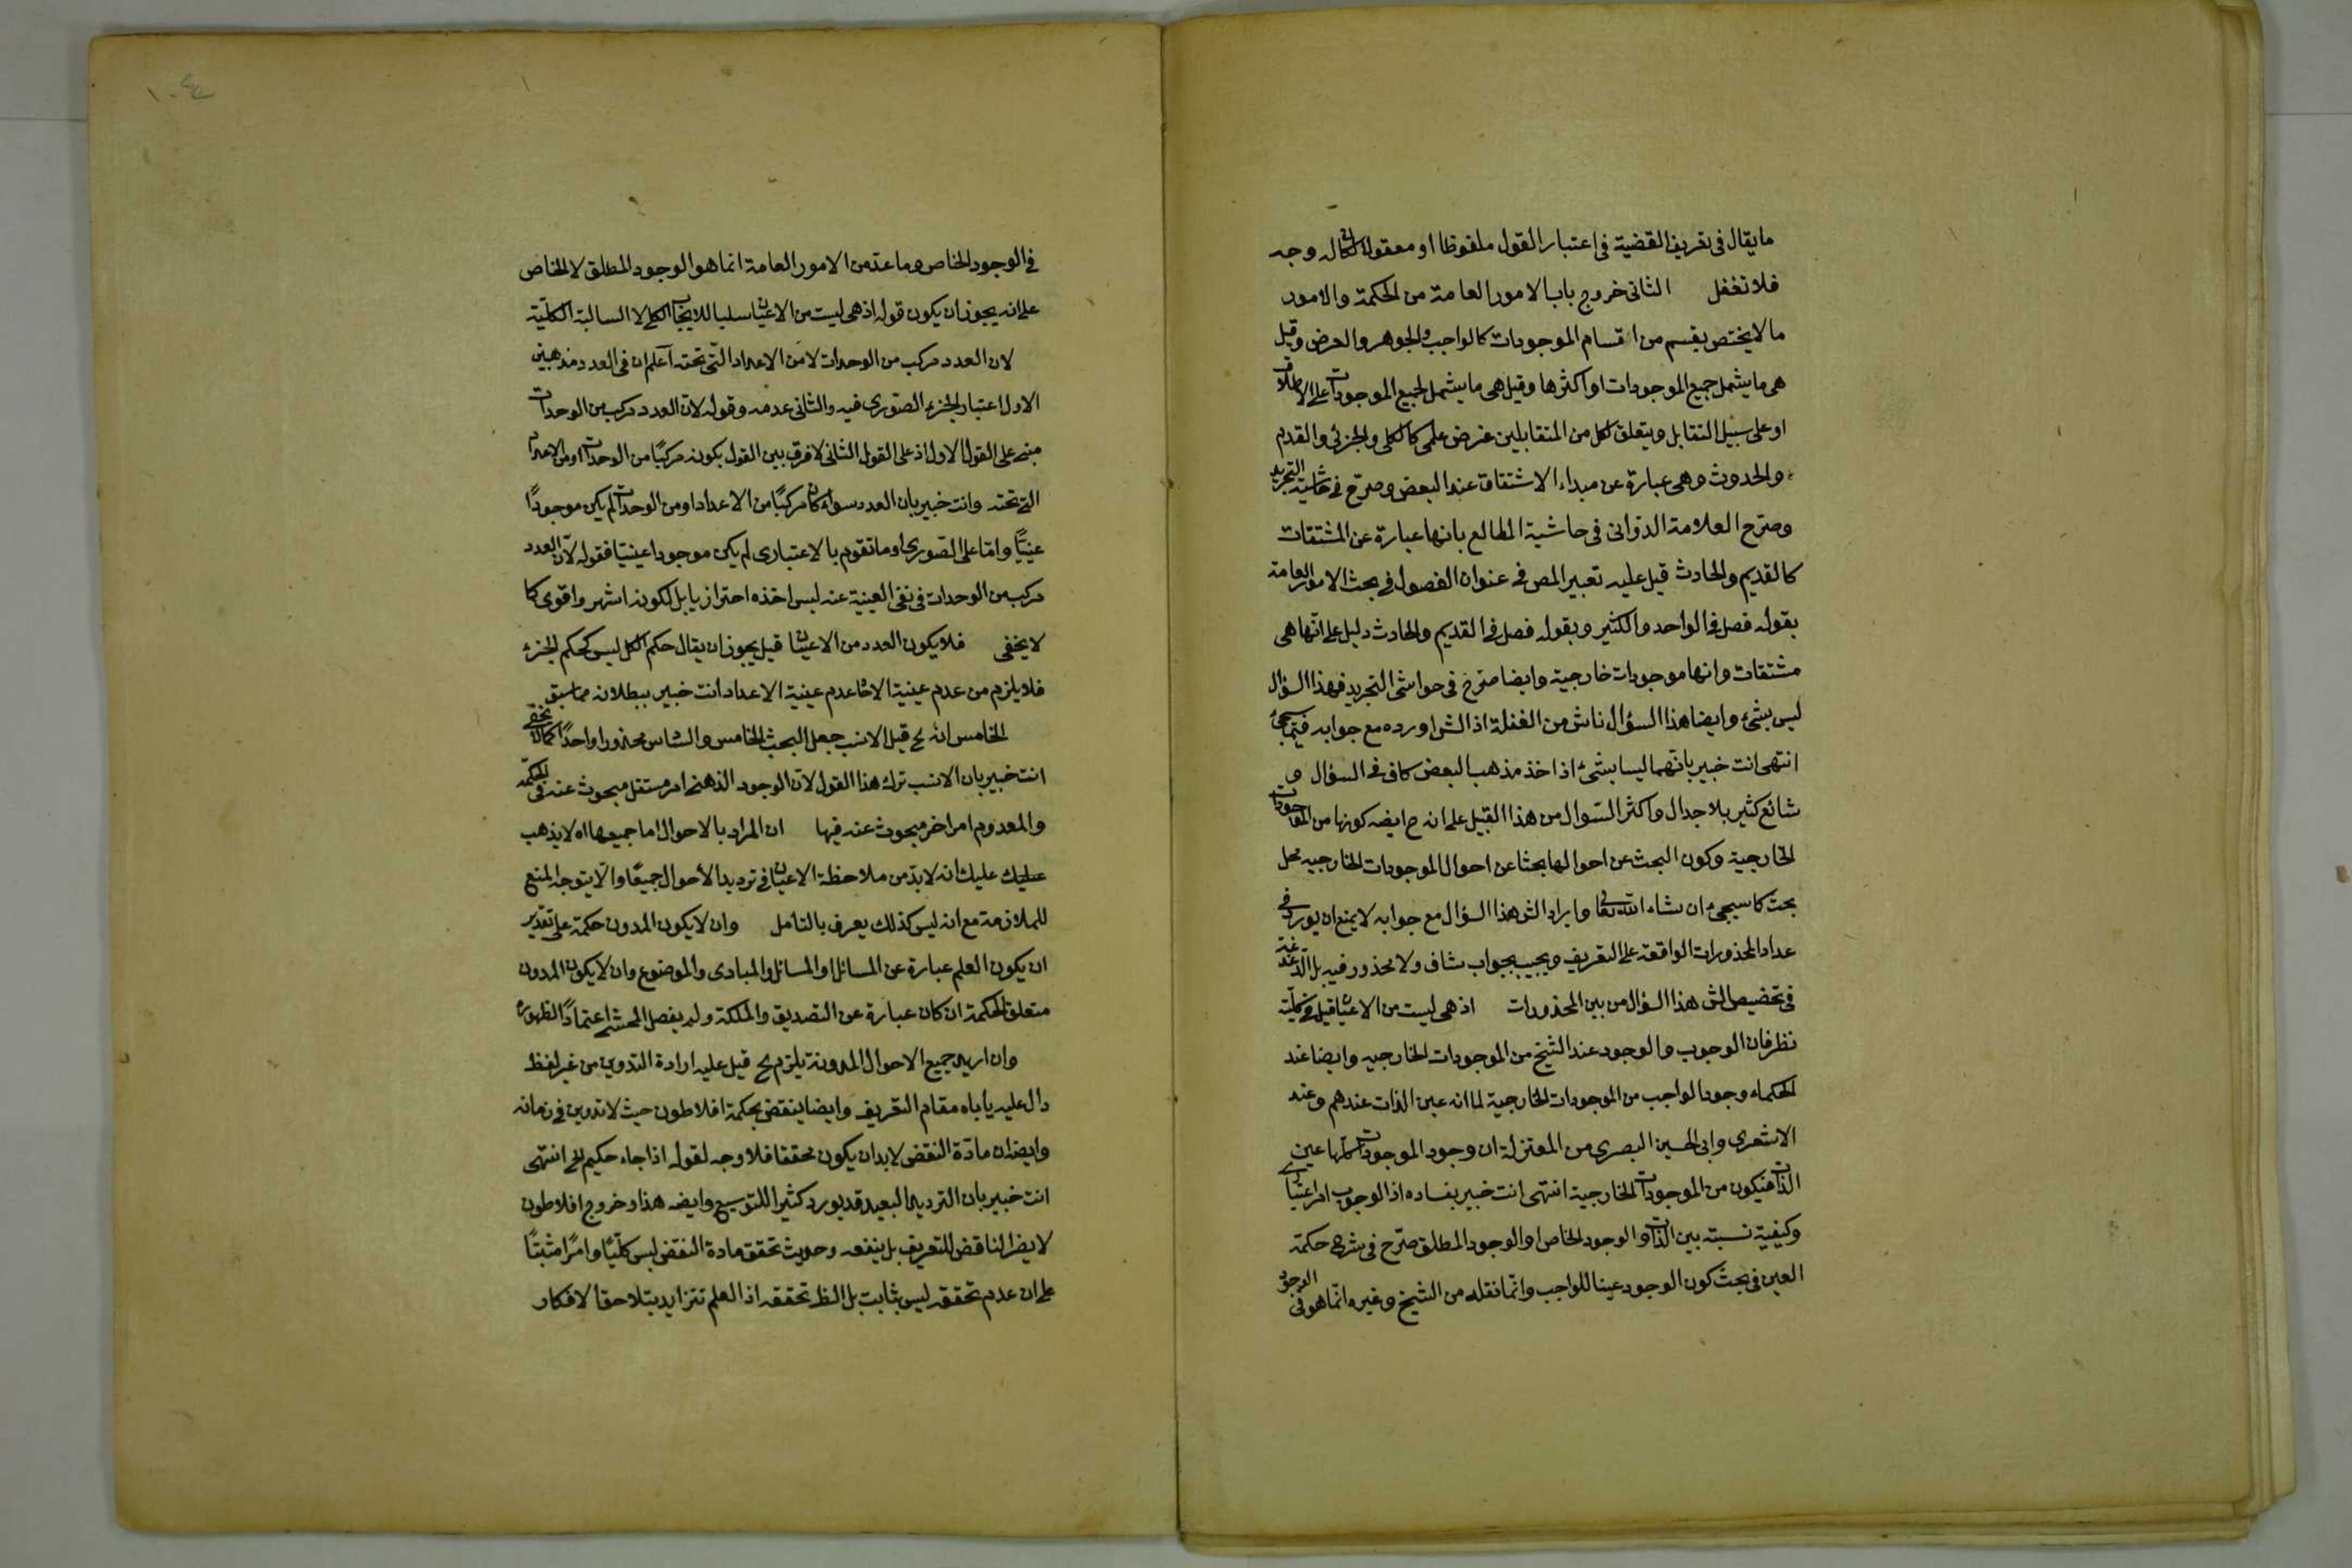 ما يقال فى تعريف القضية فى اعتبار القول ملفوظا او معقولا لكان له وجه
فلا تغفل الثانى خروج باب الامور العامة من الحكمة والامور
ما لا يختص بقسم من اقسام الموجودات كالواجب والجوهر والعرض وقيل
هى ما يشمل جميع الموجودات او اكثرها وقيل هى ما يشمل لجميع الموجودات على الاطلاق
او على سبيل التقابل ويتعلق لكل من المتقابلين غرض علمى كالكلى والجزئى والقدم
والحدوث وهى عبارة عن مبداء الاشتقاق عند البعض وصرح فى حاشية التجريد
وصرّح العلامة الدوّانى فى حاشية المطالع بانها عبارة عن المشتقات
كالقديم والحادث قيل عليه تعبير المص فى عنوان الفصول فى بحث الامور العامة
بقوله فصل فى الواحد والكثير وبقوله فصل فى القديم والحادث دليل على انّها هى
مشتقات وانها موجودات خارجية وايضا صرّح فى حواشى التجريد فهذا السؤال
ليس بشئ وايضا هذا السؤال ناش من الغفلة اذ الش اورده مع جوابه فيما سيجئ
انتهى انت خبير بانّهما ليسا بشئ اذ اخذ مذهب البعض كاف فى السؤال و
شائع كثير بلا جدال واكثر السّوال من هذا القبيل على انه ح ايضه كونها من الموجودات
الخارجية وكون البحث عن احوالها بحثا عن احوال الموجودات الخارجيه محل
بحث كما سيجئ ان شاء الله تعالى وايراد الش هذا السؤال مع جوابه لا يمنع ان يورد فى
عداد المحذورات الواقعة على التعريف ويجيب بجواب شاف ولا محذور فيه بل الدغدغة
فى تخصيص الش هذا السؤال من بين المحذورات اذ هى ليست من الاعيان قيل فى كليّته
نظر فان الوجوب والوجود عند الشيخ من الموجودات الخارجيه وايضا عند
الحكماء وجود الواجب من الموجودات الخارجية لما انه عين الذات عندهم وعند
الاشعرى وابى الحسين البصرى من المعتزلة ان وجود الموجودات كلها عين
الذات فيكون من الموجودات الخارجية انتهى انت خبير بفساده اذ الوجوب امر اعتبارى
وكيفية نسبته بين الذات والوجود الخاص او الوجود المطلق صرّح فى شرح حكمة
العين فى بحث كون الوجود عينا للواجب وانّما نقله من الشيخ وغيره انّما هو فى الوجود
فى الوجود الخاص وما عدّ من الامور العامة انما هو الوجود المطلق لا الخاص
على انه يجوز ان يكون قوله اذ هى ليست من الاعيان سلبا للايجاب الكلى لا السالبة الكلّية
لان العدد مركب من الوحدات لا من الاعداد الّتى تحته اعلم ان فى العدد مذهبين
الاول اعتبار الجزء الصّورى فيه والثانى عدمه وقوله لانّ العدد مركب من الوحدات
مبنى على القول الاول اذ على القول الثانى لا فرق بين القول بكونه مركبًا من الوحدات او من الاعداد
التى تحته وانت خبير بان العدد سواء كان مركبًا من الاعداد او من الوحدات لم يكن موجودًا
عينيًا وامّا على الصّورى او ما تقوم بالاعتبارى لم يكن موجودا عينيّا فقوله لانّ العدد
مركب من الوحدات فى نفى العينية عنه ليس اخذه احترازيا بل لكونه اشهر واقوى كما
لا يخفى فلا يكون العدد من الاعيان قيل يجوز ان يقال حكم الكل ليس كحكم الجزء
فلا يلزم من عدم عينية الاحاد عدم عينية الاعداد انت خبير ببطلانه مما سبق
الخامس انه لخ قيل الانسب جعل البحث الخامس والسّادس محذورا واحدًا كما لا يخفى
انت خبير بان الانسب ترك هذا القول لانّ الوجود الذهنى امر مستقل مبحوث عنه فى الحكمة
والمعدوم امر اخر مبحوث عنه فيها ان المراد بالاحوال اما جميعها اه لا يذهب
عليك عليك انه لا بدّ من ملاحظة الاعيان فى ترديد الأحوال جميعًا والّا يتوجه المنع
للملازمة مع انه ليس كذلك يعرف بالتأمل وان لا يكون المدون حكمة على تقدير
ان يكون العلم عبارة عن المسائل او المسائل والمبادى والموضوع وان لا يكون المدون
متعلق الحكمة ان كان عبارة عن التصديق والملكة ولم يفصل المحشى اعتمادًا لظهوره
وان اريد جميع الاحوال المدونة يلزم لخ قيل عليه ارادة التدوين من غير لفظ
دال عليه يأباه مقام التعريف وايضا ينقض بحكمة افلاطون حيث لا تدوين فى زمانه
وايضا ان مادّة النقض لا بد ان يكون محققا فلا وجه لقوله اذا جاء حكيم لخ انتهى
انت خبير بان الترديد البعيد قد يورد كثيرا للتوسيع وايضه هذا وخروج افلاطون
لا يضر الناقض للتعريف بل ينفعه وحديث تحقق مادة النقض ليس كلّيًا وامرًا مثبتًا
على ان عدم تحققه ليس بثابت بل الظ تحققه اذ العلم تتزايد بتلاحق الافكار